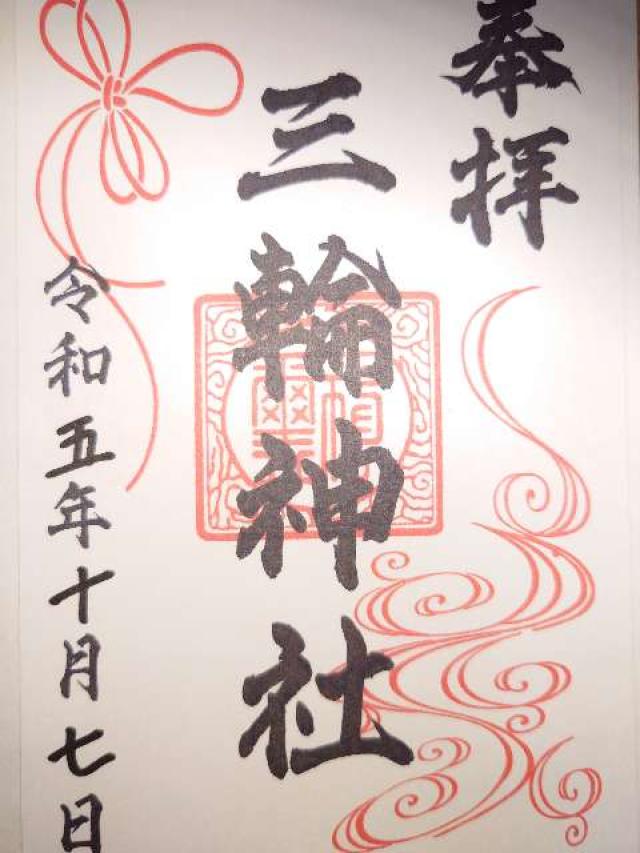 奉拝
三輪神社
令和五年十月七日